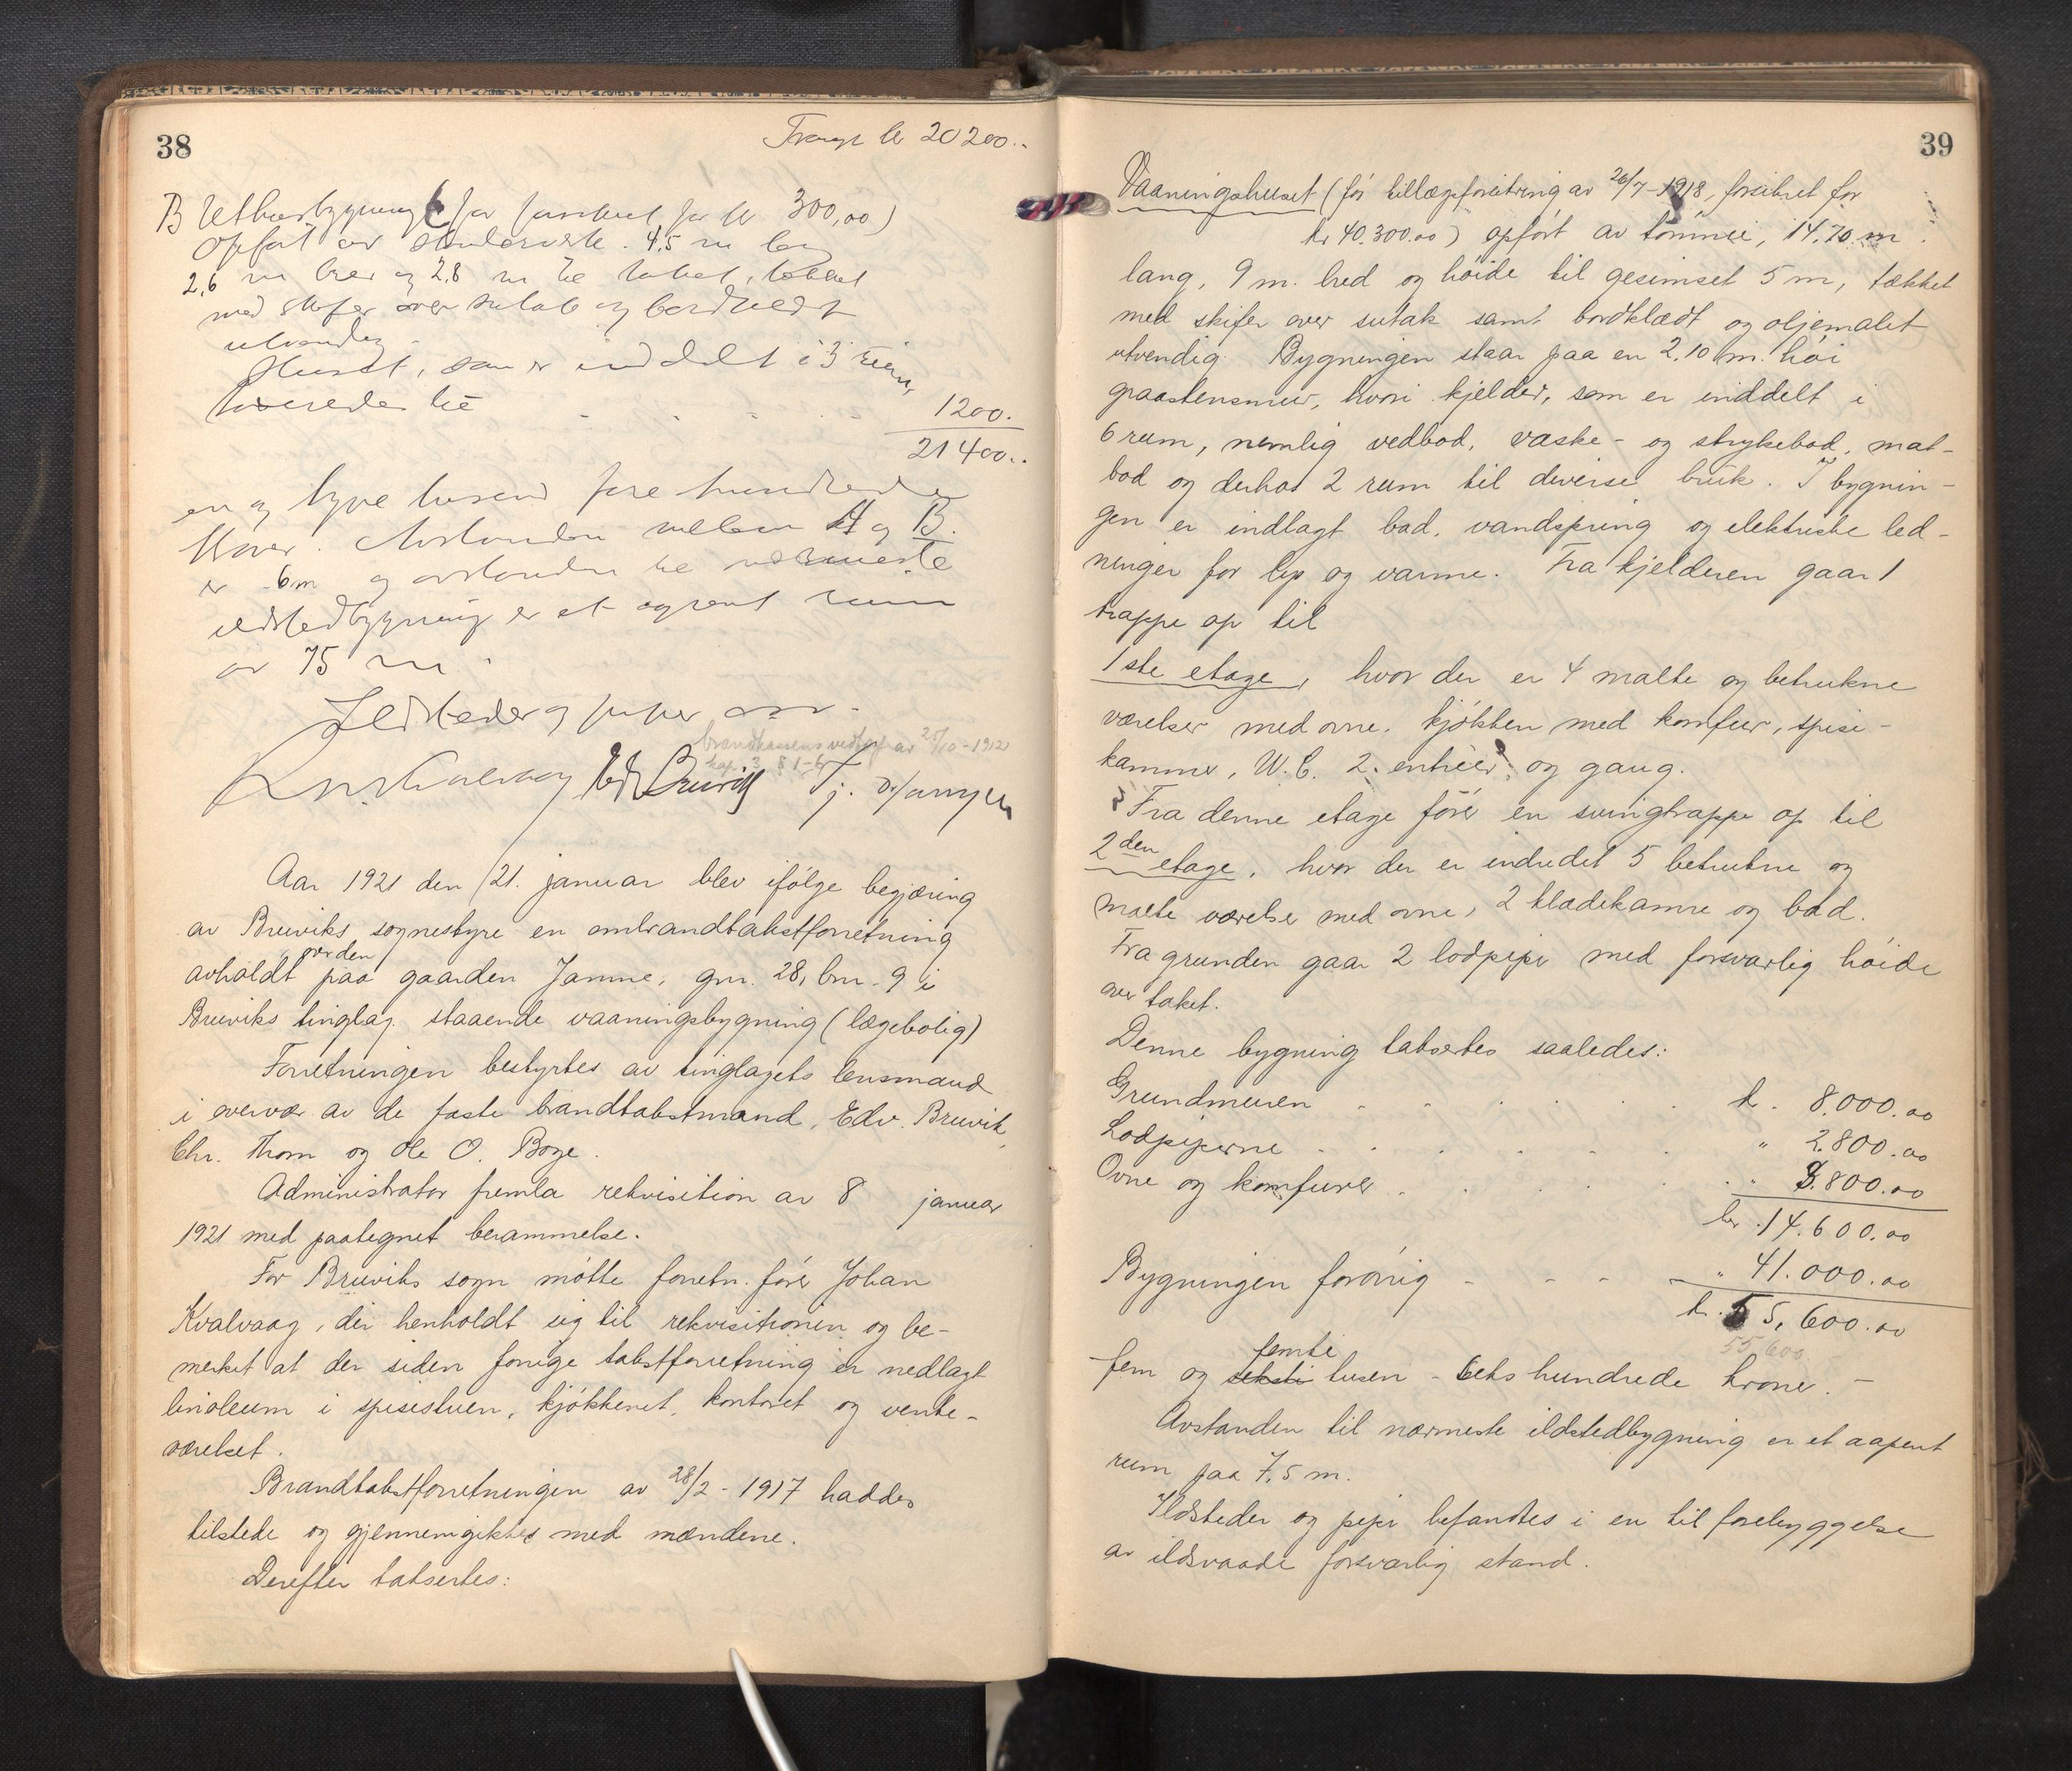 38
B Uthusbygning (før forsikret for kr 300,00)
opført av 4,5 m lang
2,6 m bred og 2,8 m til taket, tækket
med skifer over sutak og bordklædt
utvendig.
Huset, som er inddelt i 3 rum,
takseredes til 1200.
21400..
en og tyve tusend fire hundrede
kroner. Avstanden mellem A og B.
er 6m og avstanden til nærmeste
ildstedbygning er et aapent rum
av 75 m.
Ildsteder og piper
brandkassens vedtægt av 25/10-1912
kap. 3 § 1-6
Edv Bruvik
Aar 1921 den 21. januar blev ifølge begjæring
av Bruviks sognestyre en ombrandtakstforretning
avholdt over den paa gaarden Jamne, gnr. 28, bnr. 9 i
Bruviks tinglag staaende vaaningsbygning (lægebolig)
Forretningen bestyrtes av tinglagets lensmand
i overvær av de faste brandtakstmænd, Edv. Bruvik,
Chr. Thom og Ole O. Boge.
Administrator fremla rekvisition av 8 januar
1921 med paategnet berammelse.
For Bruviks sogn møtte forretn. fører Johan
Kvalvaag, der henholdt sig til rekvisitionen og be-
merket at der siden forrige takstforretning er nedlagt
linoleum i spisestuen, kjøkkenet, kontoret og vente-
værelset.
Brandtakstforretningen av 28/2 - 1917 haddes
tilstede og gjennemgikkes med mændene.
Derefter taksertes:
39
Vaaningshuset (før tillægsforsikring av 26/7-1918, forsikret for
kr 40.300.00) opført av tømmer, 14,70 m
lang, 9 m. bred og høide til gesimset 5 m, tækket
med skifer over sutak samt bordklædt og oljemalet
utvendig. Bygningen staar paa en 2,10 m. høi
graastensmur, hvori kjelder, som er inddelt i
6 rum, nemlig vedbod, vaske- og strykebod, mat-
bod og derhos 2 rum til diverse bruk. I bygnin-
gen er indlagt bad, vandspring og elektriske led-
ninger for lys og varme. Fra kjelderen gaar 1
trappe op til
1ste etage, hvor der er 4 malte og betrukne
værelser med ovne, kjøkken med komfur, spise-
kammer, W.C. 2 entréer og gang.
Fra denne etage fører en svingtrappe op til
2den etage, hvor der er indredet 5 betrukne og
malte værelser med ovne, 2 klædekamre og bad.
Fra grunden gaar 2 lodpiper med forsvarlig høide
over taket.
Denne bygning taksertes saaledes:
Grundmuren kr. 8.000.00
Lodpiperne " 2.800.00
Ovne og komfurer " 3.800.00
kr. 14.600.00
Bygningen forøvrig " 41.000.00
kr. 55,600.00
55,600
fem og seksti femti tusen - seks hundrede kroner. -
Avstanden til nærmeste ildstedbygning er et aapent
rum paa 7,5 m.
Ildsteder og piper befandtes i en til forebyggelse
av ildsvaade forsvarlig stand.